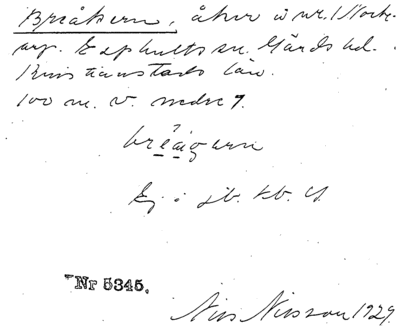 Breåkern, åker å nr. 1 Norre-
arp. Ephults sn. Gärds hd.
Kristianstads län.
100 m. v. nedre 7.
breagarn
Ej i jb. kb. G.
Nr 5345.
Nils Nilsson 1929.